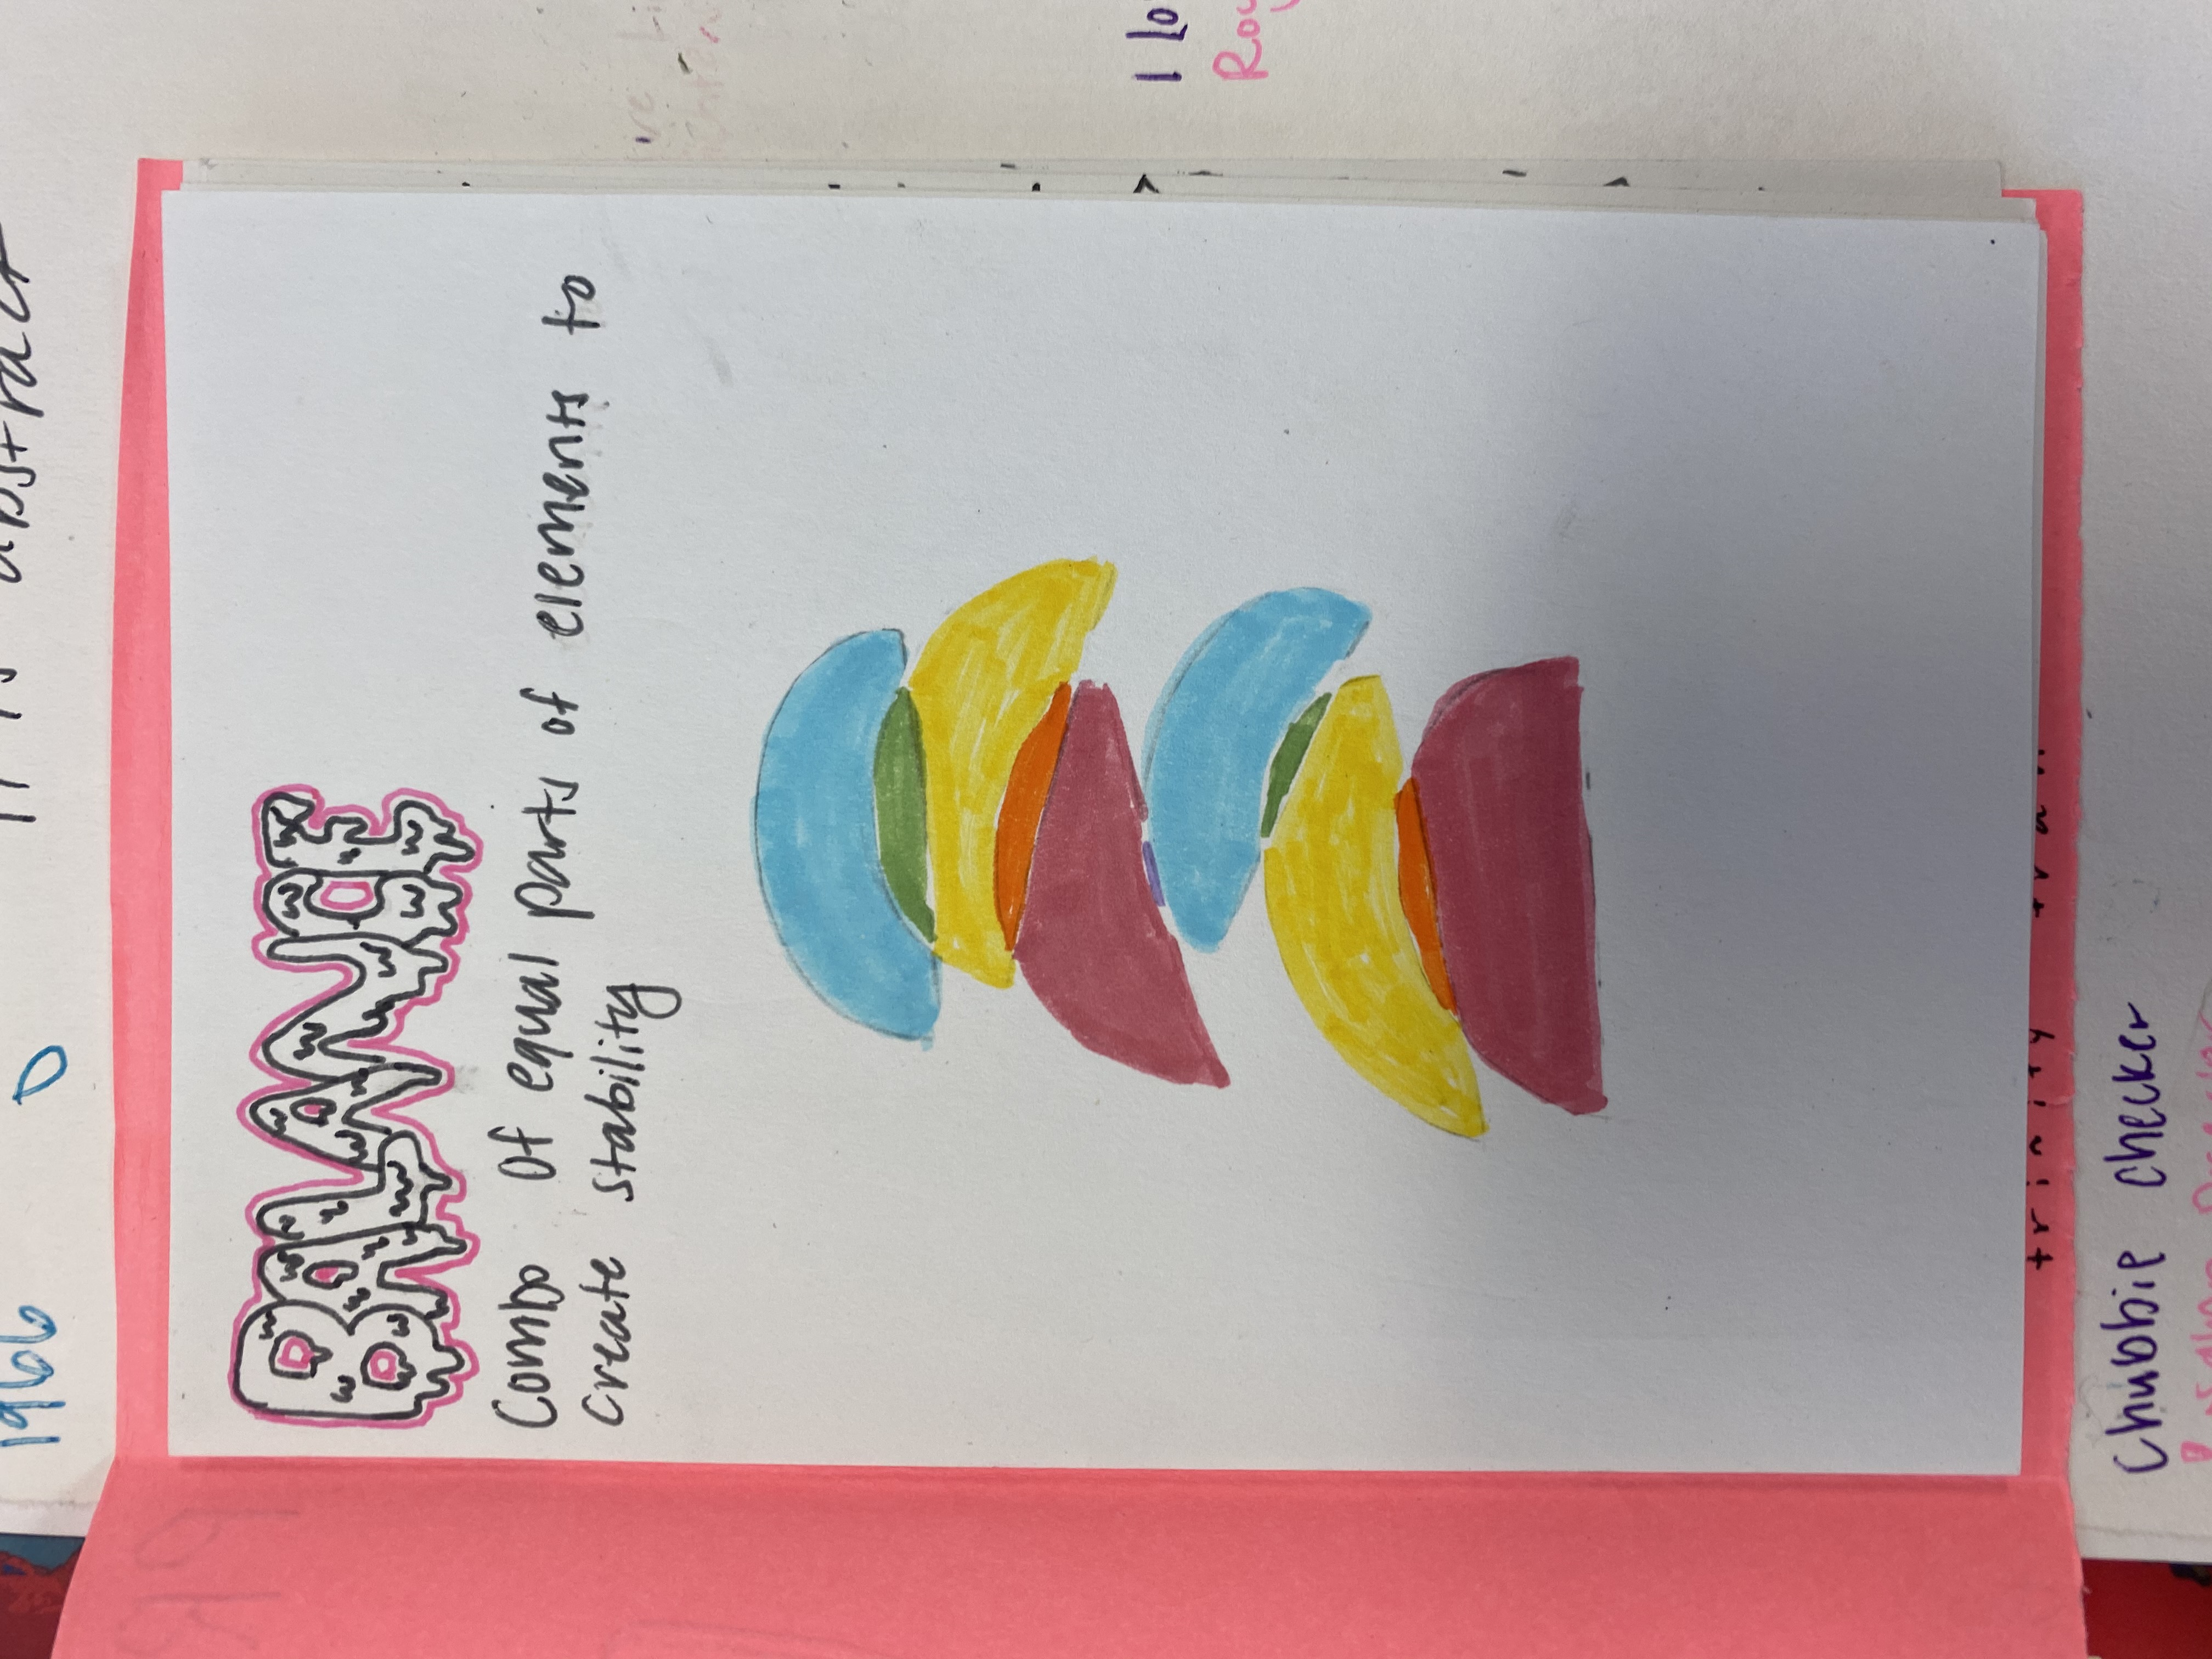 1966
It is abstract
BALANCE
Combo Of equal parts of elements to
create stability
I Lo
trinity tran
Chubbie checker